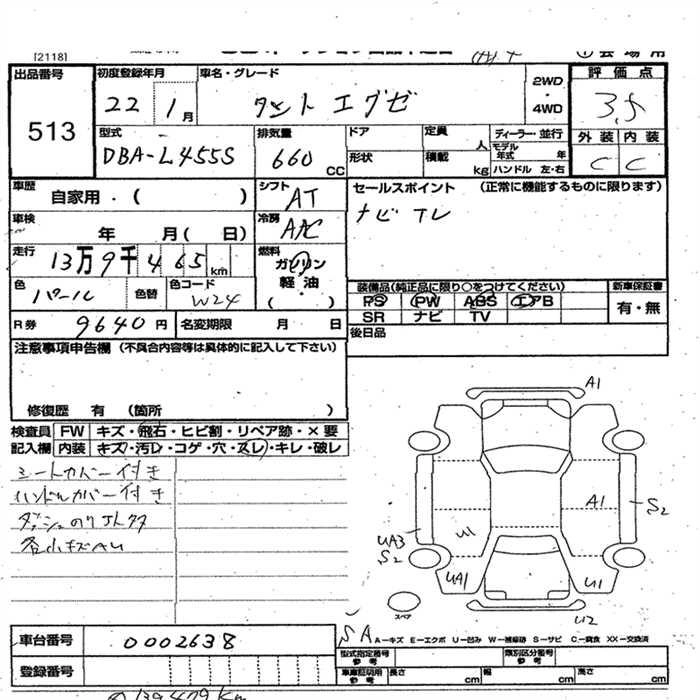 [2118]
出品番号 513
初度登録年月 22 1月
車名・グレード タント エグゼ
2WD ・ 4WD
評価点 3.5
型式 DBA-L455S
排気量 660 CC
ドア 形状
定員 人 積載 kg
ディーラー・並行
モデル年式 年
ハンドル 左・右
外装 内装
C C
車歴 自家用・( )
シフト AT
セールスポイント (正常に機能するものに限ります)
ナビ TV
車検 年 月( 日)
冷房 AAC
走行 13万9千465km
燃料 ガソリン 軽油 ( )
色 パール 色替 色コード W24
装備品(純正品に限り○をつけてください)
PS PW ABS エアB
SR ナビ TV
新車保証書 有・無
R券 9640円 名変期限 月 日
後日品
注意事項申告欄 (不具合内容等は具体的に記入して下さい)
修復歴 有 (箇所 )
検査員記入欄
FW キズ・飛石・ヒビ割・リペア跡・×要
内装 キズ・汚レ・コゲ・穴・スレ・キレ・破レ
シートカバー付き
ハンドルカバー付き
各小キズAU
A1
A1
S2
U1
UA3
S2
UA1
U1
U2
スペア
SA
A―キズ E―エクボ U―凹み W―補修跡 S―サビ C―腐食 XX―交換済
車台番号 0002638
登録番号
型式指定番号 参考
類別区分番号 参考
車庫証明用 参考 長さ cm 幅 cm 高さ cm